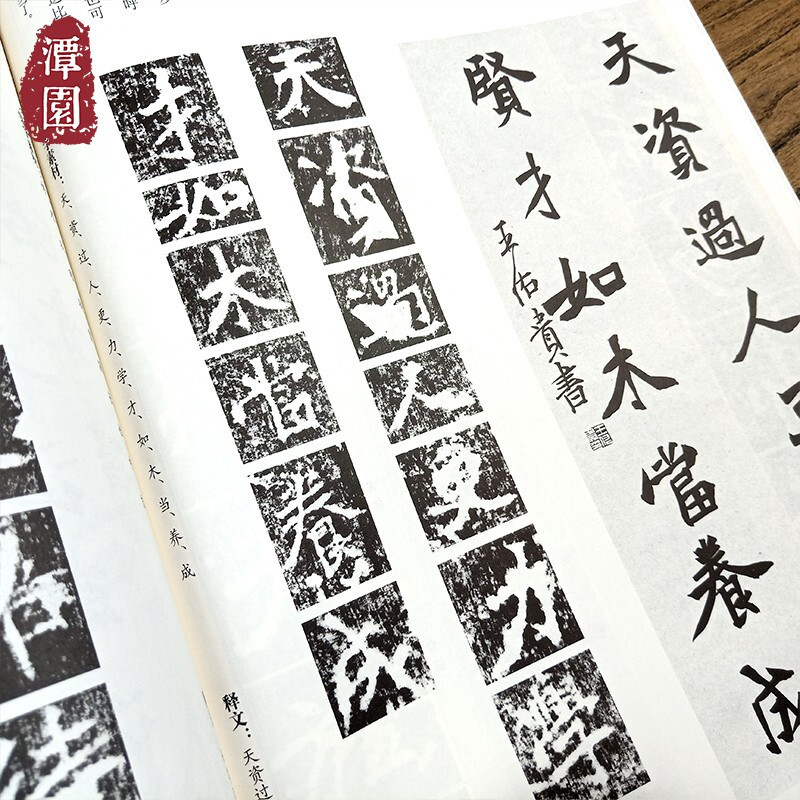 潭園
天資過人
賢才如木當養成
王佑貴書
天資過人更力學
才如木當養成
素材：天、资、过、人、更、力、学、才、如、木、当、养、成
释文：天资过
也可
比
了。